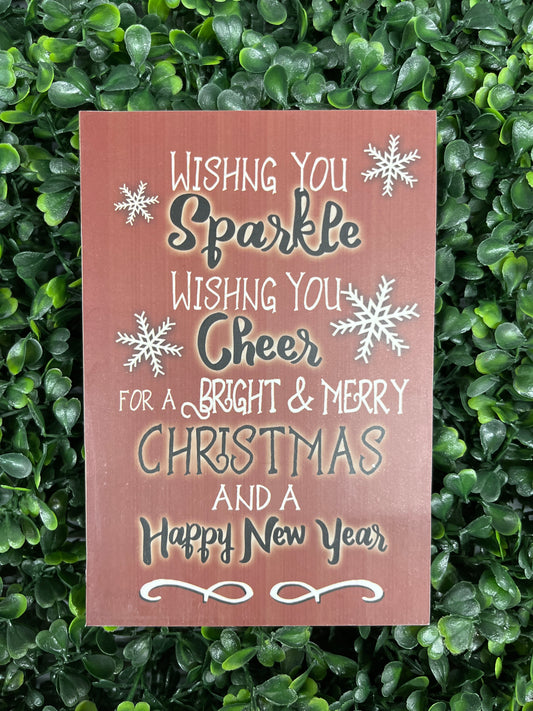 WISHNG YOU
Sparkle
WISHNG YOU
Cheer
FOR A BRIGHT & MERRY
CHRISTMAS
AND A
Happy New Year